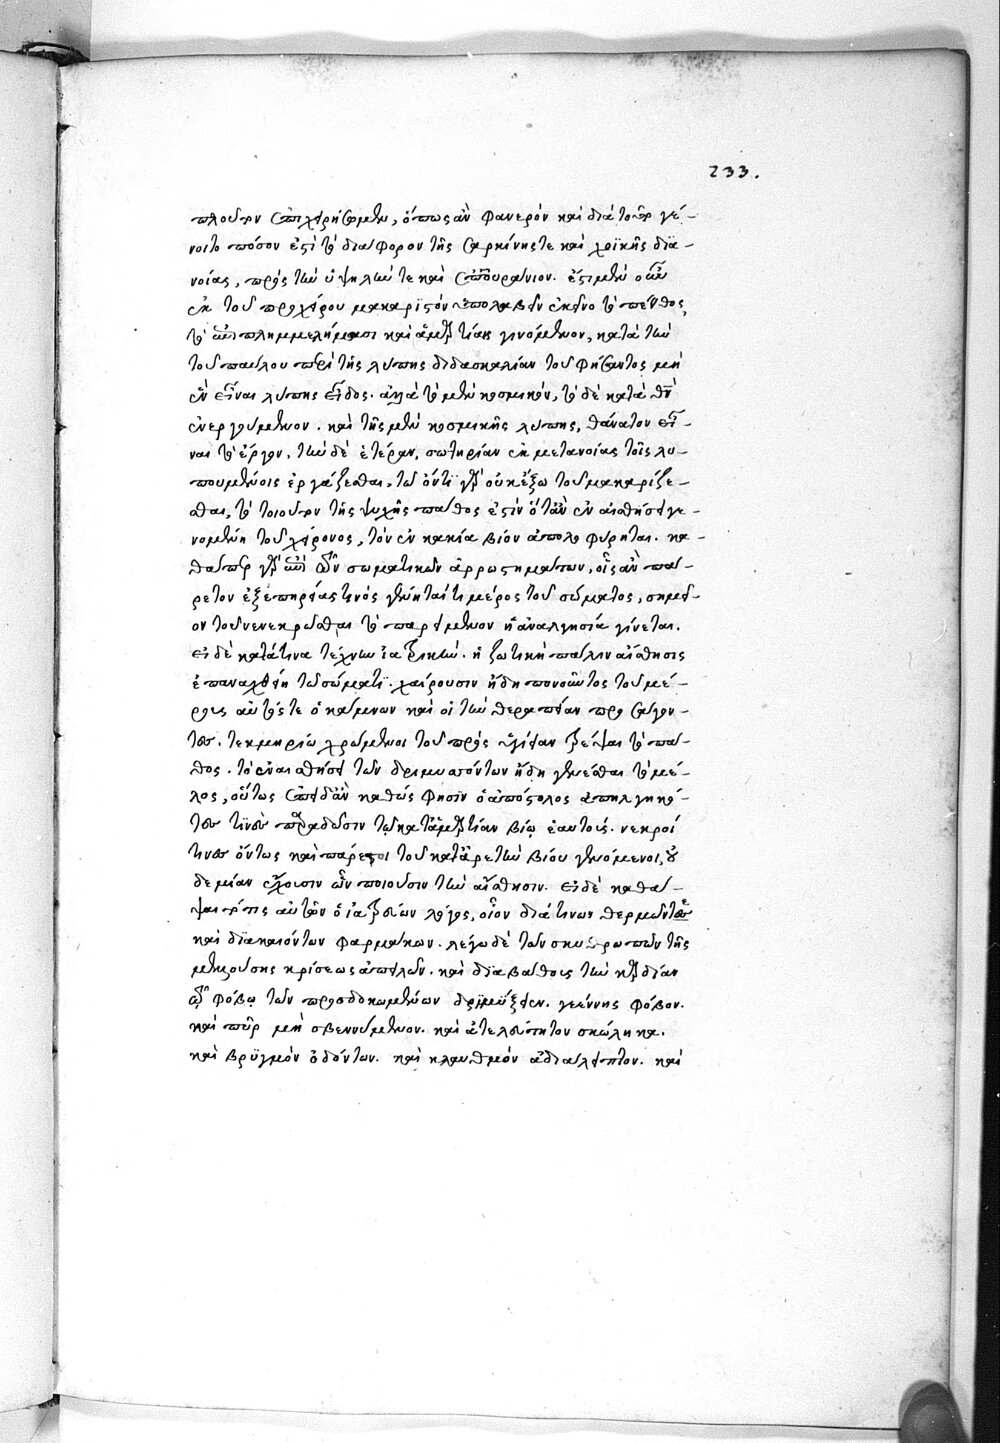 233.
πλουτον ἐπιχειρήσωμεν, ὅπως ἂν φανερὸν καὶ διὰ τούτων γέ-
νοιτο πόσον ἐστὶ τὸ διάφορον τῆς σαρκίνης τε καὶ χοϊκῆς δια-
νοίας, πρὸς τὴν ὑψηλήν τε καὶ ἐπουράνιον. ἔστι μὲν οὖν
ἐκ τοῦ προχείρου μακαριστὸν ὑπολαβεῖν ἐκεῖνο τὸ πένθος
τὸ ἐπὶ πλημμελήμασι καὶ ἁμαρτίαις γινόμενον, κατὰ τὴν
τοῦ παύλου περὶ τῆς λύπης διδασκαλίαν τοῦ φήσαντος μὴ
ἓν εἶναι λύπης εἶδος. ἀλλὰ τὸ μὲν κοσμικόν, τὸ δὲ κατὰ θν
ἐνεργούμενον. καὶ τῆς μὲν κοσμικῆς λύπης, θάνατον εἶ-
ναι τὸ ἔργον, τὴν δὲ ἑτέραν, σωτηρίαν ἐκ μετανοίας τοῖς λυ-
πουμένοις ἐργάζεσθαι. τῷ ὄντι γὰρ οὐκ ἔξω τοῦ μακαρίζε-
σθαι, τὸ τοιοῦτον τῆς ψυχῆς πάθος ἐστὶν ὅταν ἐν αἰσθήσει γε-
νομένη τοῦ χείρονος, τὸν ἐν κακίᾳ βίον ἀπολοφύρηται. κα-
θάπερ γὰρ ἐπὶ τῶν σωματικῶν ἀρρωστημάτων, οἷς ἂν πά-
ρετον ἐξ ἐπηρείας τινός γένηταί τι μέρος τοῦ σώματος, σημεῖ-
ον τοῦ νενεκρῶσθαι τὸ παρειμένον ἡ ἀναλγησία γίνεται.
εἰ δὲ κατά τινα τέχνην ἰατρικὴν. ἡ ζωτικὴ πάλιν αἴσθησις
ἐπαναχθείη τῷ σώματι. χαίρουσιν ἤδη πονοῦντος τοῦ μέ-
ρους αὐτός τε ὁ κάμνων καὶ οἱ τὴν θεραπείαν προσάγον-
τες. τεκμηρίῳ χρώμενοι τοῦ πρὸς ὑγίειαν τρέψαι τὸ πά-
θος. τὸ ἐν αἰσθήσει τῶν δριμυσσόντων ἤδη γενέσθαι τὸ μέ-
λος, οὕτως ἐπειδὰν καθώς φησὶν ὁ ἀπόστολος ἀπηλγηκό-
τες τινὲς παραδῶσιν τῷ κατὰ ἁμαρτίαν βίῳ ἑαυτούς. νεκροί
τινες ὄντως καὶ πάρετοι τοῦ κατ ἀρετὴν βίου γενόμενοι, οὐ
δεμίαν ἔχουσιν ὧν ποιοῦσιν τὴν αἴσθησιν. εἰ δὲ καθά-
ψαιτό τις αὐτῶν ὁ ἰατρεύων λόγος, οἷον διά τινων θερμῶν τε
καὶ διακαιόντων φαρμάκων. λέγω δὲ τῶν σκυθρωπῶν τῆς
μελλούσης κρίσεως ἀπειλῶν. καὶ διὰ βάθους τὴν καρδίαν
τῷ φόβῳ τῶν προσδοκωμένων δριμύξειεν. γεέννης φόβον.
καὶ πῦρ μὴ σβεννύμενον. καὶ ἀτελεύτητον σκώληκα.
καὶ βρυγμὸν ὀδόντων. καὶ κλαυθμὸν ἀδιάλειπτον. καὶ